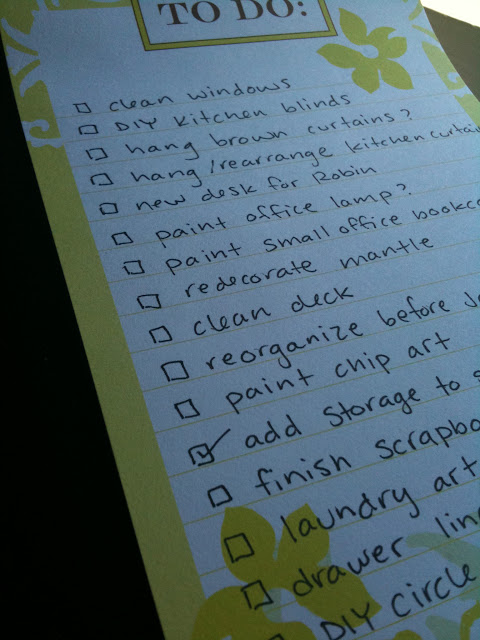 TO DO:
clean windows
DIY kitchen blinds
hang brown curtains?
hang/rearrange kitchen
new desk for Robin
paint office lamp?
paint small office
redecorate mantle
clean deck
reorganize before
paint chip art
add storage to
finish
laundry art
drawer
DIY circle